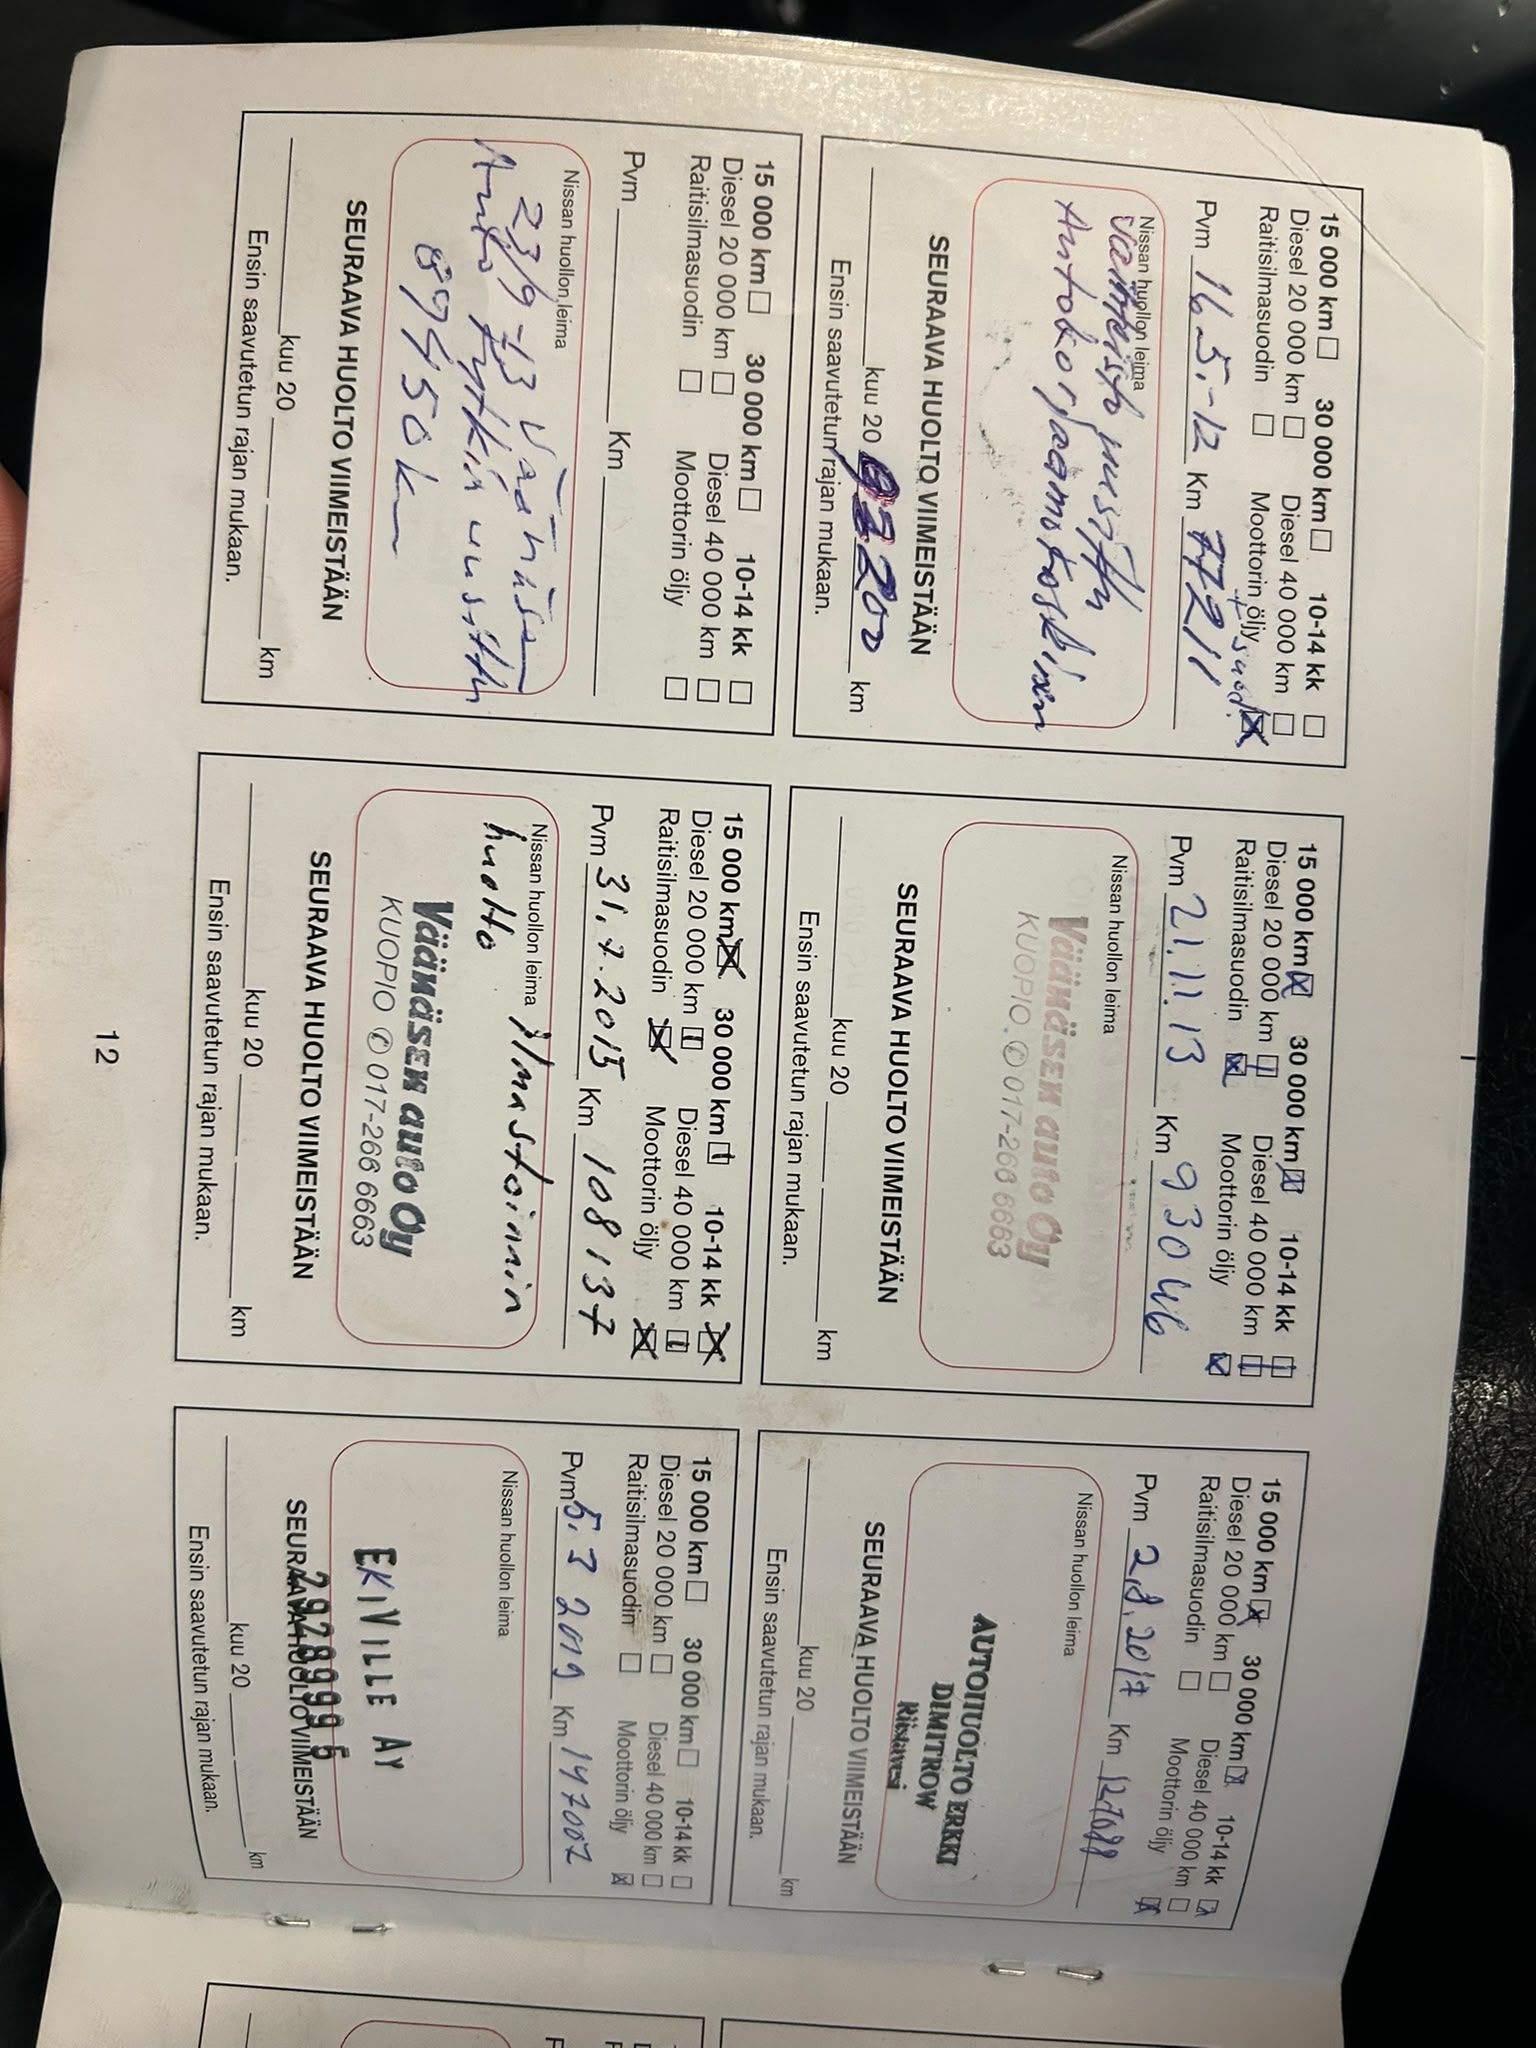 15 000 km 30 000 km 10-14 kk
Diesel 20 000 km Diesel 40 000 km
Raitisilmasuodin Moottorin öljy
+ suod.
Pvm 16.5.-12 Km 77211
Nissan huollon leima
vaihteisto pusittu
Autokorjaamo Koskinen
SEURAAVA HUOLTO VIIMEISTÄÄN
kuu 20 92200 km
Ensin saavutetun rajan mukaan.
15 000 km 30 000 km 10-14 kk
Diesel 20 000 km Diesel 40 000 km
Raitisilmasuodin Moottorin öljy
Pvm 21.11.13 Km 93046
Nissan huollon leima
Väänäsen auto Oy
KUOPIO ✆ 017-266 6663
SEURAAVA HUOLTO VIIMEISTÄÄN
kuu 20 km
Ensin saavutetun rajan mukaan.
15 000 km 30 000 km 10-14 kk
Diesel 20 000 km Diesel 40 000 km
Raitisilmasuodin Moottorin öljy
Pvm 2.8.2017 Km
Nissan huollon leima
AUTOHUOLTO ERKKI
DIMITROW
Riistavesi
SEURAAVA HUOLTO VIIMEISTÄÄN
kuu 20 km
Ensin saavutetun rajan mukaan.
15 000 km 30 000 km 10-14 kk
Diesel 20 000 km Diesel 40 000 km
Raitisilmasuodin Moottorin öljy
Pvm Km
Nissan huollon leima
23/9-13 Väänäsen
Auto uusittu
89450 km
SEURAAVA HUOLTO VIIMEISTÄÄN
kuu 20 km
Ensin saavutetun rajan mukaan.
15 000 km 30 000 km 10-14 kk
Diesel 20 000 km Diesel 40 000 km
Raitisilmasuodin Moottorin öljy
Pvm 31.7.2015 Km 108137
Nissan huollon leima Ilmastoinnin
huolto
Väänäsen auto Oy
KUOPIO ✆ 017-266 6663
SEURAAVA HUOLTO VIIMEISTÄÄN
kuu 20 km
Ensin saavutetun rajan mukaan.
15 000 km 30 000 km 10-14 kk
Diesel 20 000 km Diesel 40 000 km
Raitisilmasuodin Moottorin öljy
Pvm 5.3 2019 Km 147007
Nissan huollon leima
EKIVILLE AY
2928999 5
SEURAAVA HUOLTO VIIMEISTÄÄN
kuu 20 km
Ensin saavutetun rajan mukaan.
12